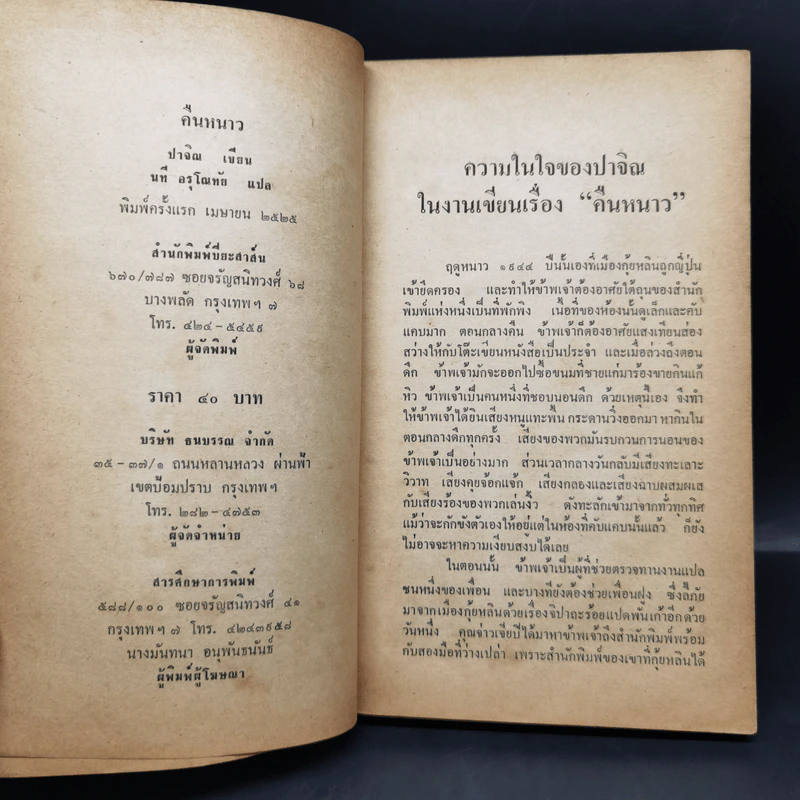 คืนหนาว
ปาจิณ เขียน
นที อรุโณทัย แปล
พิมพ์ครั้งแรก เมษายน ๒๕๒๕
สำนักพิมพ์ปิยะสาส์น
๖๗๐/๗๘๗ ซอยจรัญสนิทวงศ์ ๖๘
บางพลัด กรุงเทพฯ ๗
โทร. ๔๒๔-๕๔๕๙
ผู้จัดพิมพ์
ราคา ๔๐ บาท
บริษัท ธนบรรณ จำกัด
๓๕-๓๗/๑ ถนนหลานหลวง ผ่านฟ้า
เขตป้อมปราบ กรุงเทพฯ
โทร. ๒๘๒-๔๗๕๓
ผู้จัดจำหน่าย
สารศึกษาการพิมพ์
๕๘๘/๑๐๐ ซอยจรัญสนิทวงศ์ ๔๑
กรุงเทพฯ ๗ โทร. ๔๒๔๓๙๕๘
นางมันทนา อนุพันธนันธ์
ผู้พิมพ์ผู้โฆษณา
ความในใจของปาจิณ
ในงานเขียนเรื่อง “คืนหนาว”
ฤดูหนาว ๑๙๔๔ ปีนั้นเองที่เมืองกุ้ยหลินถูกญี่ปุ่น
เข้ายึดครอง และทำให้ข้าพเจ้าต้องอาศัยใต้ถุนของสำนัก
พิมพ์แห่งหนึ่งเป็นที่พักพิง เนื้อที่ของห้องนั้นดูเล็กและคับ
แคบมาก ตอนกลางคืน ข้าพเจ้าก็ต้องอาศัยแสงเทียนส่อง
สว่างให้กับโต๊ะเขียนหนังสือเป็นประจำ และเมื่อล่วงถึงตอน
ดึก ข้าพเจ้ามักจะออกไปซื้อขนมที่ชายแก่มาร้องขายกินแก้
หิว ข้าพเจ้าเป็นคนหนึ่งที่ชอบนอนดึก ด้วยเหตุนี้เอง จึงทำ
ให้ข้าพเจ้าได้ยินเสียงหนูแทะพื้นกระดานวิ่งออกมาหากินใน
ตอนกลางดึกทุกครั้ง เสียงของพวกมันรบกวนการนอนของ
ข้าพเจ้าเป็นอย่างมาก ส่วนเวลากลางวันกลับมีเสียงทะเลาะ
วิวาท เสียงคุยจ๊อกแจ๊ก เสียงกลองและเสียงฉาบผสมผเส
กับเสียงร้องของพวกเล่นงิ้ว ดังทะลักเข้ามาจากทั่วทุกทิศ
แม้ว่าจะกักขังตัวเองให้อยู่แต่ในห้องที่คับแคบนั้นแล้ว ก็ยัง
ไม่อาจจะหาความเงียบสงบได้เลย
ในตอนนั้น ข้าพเจ้าเป็นผู้ที่ช่วยตรวจทานงานแปล
ชนหนึ่งของเพื่อน และบางทียังต้องช่วยเพื่อนฝูง ซึ่งลี้ภัย
มาจากเมืองกุ้ยหลินด้วยเรื่องจิปาถะร้อยแปดพันเก้าอีกด้วย
วันหนึ่ง คุณจ่าวเจียปี้ได้มาหาข้าพเจ้าถึงสำนักพิมพ์พร้อม
กับสองมือที่ว่างเปล่า เพราะสำนักพิมพ์ของเขาที่กุ้ยหลินได้